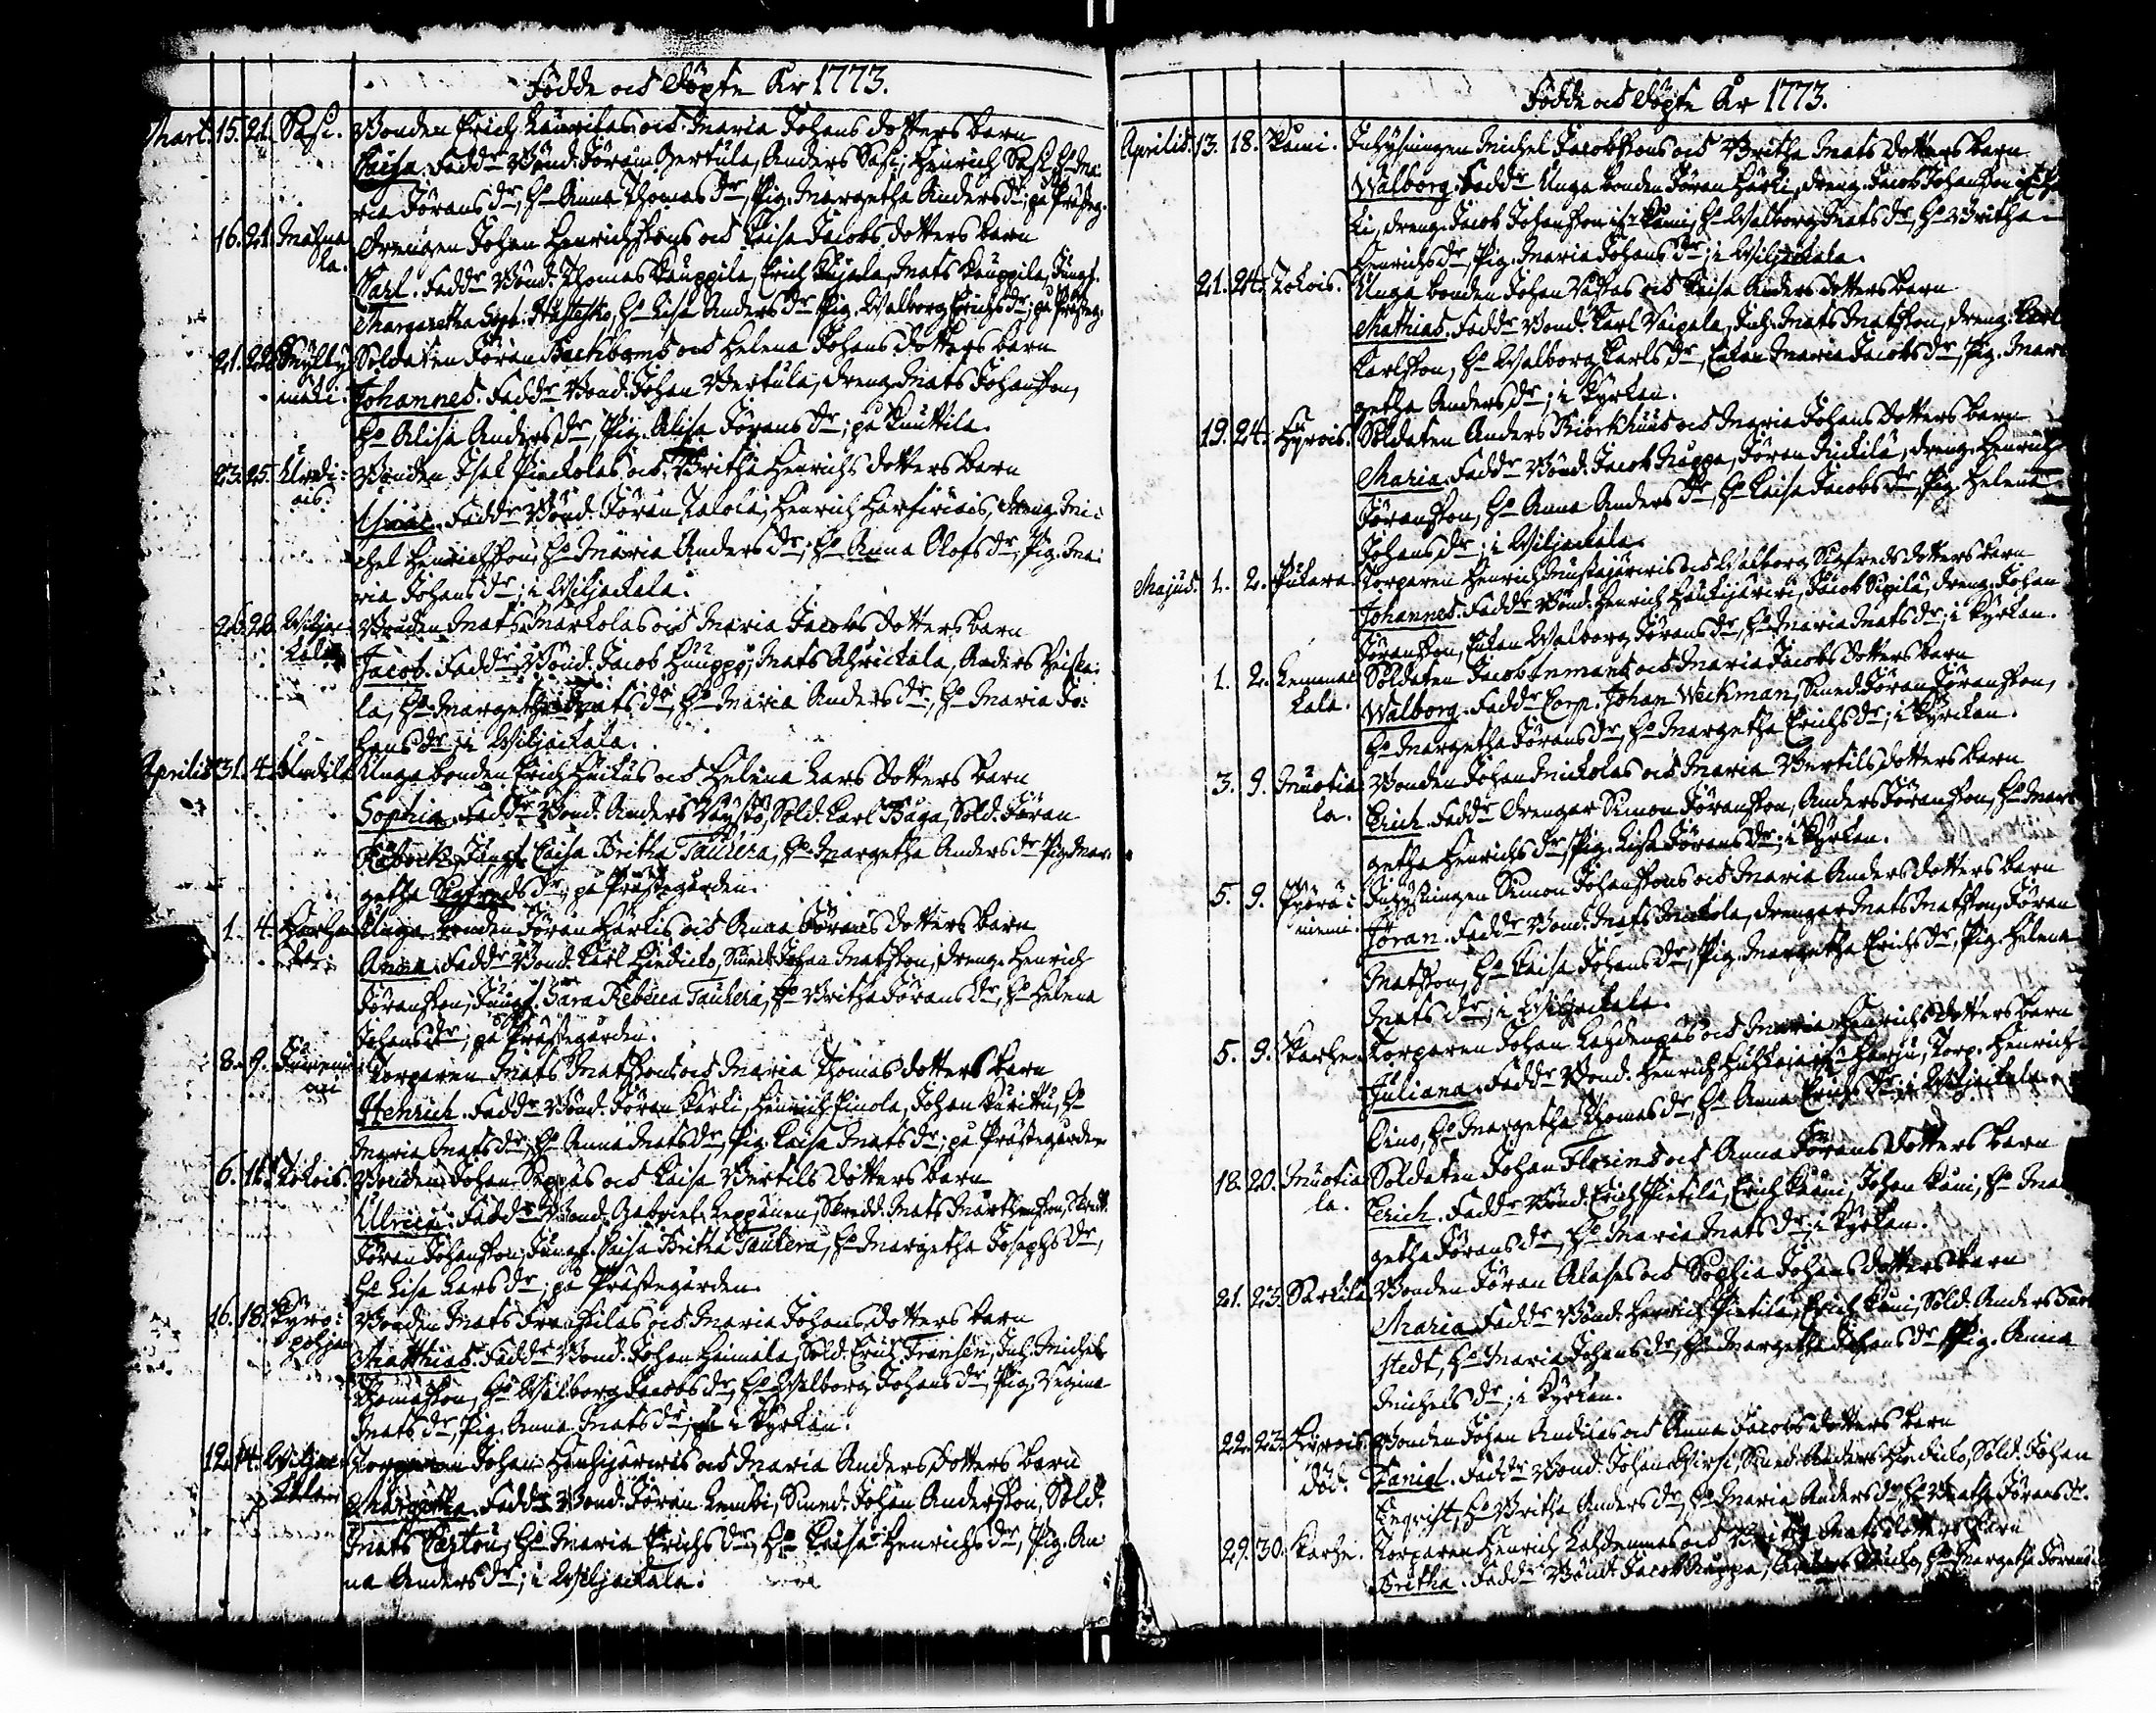 Födde och Döpte År 1773.
Mart. 15. 21. Sasi. Bonden Erich Lauritas och Maria Johans dotters barn
Caisa. Faddr Bönd. Jöran Gertula, Anders Sasi, Henrich Sasi, Ho Ma:
ria Jörans dr, Ho Anna Thomas dr, Pig. Margetha Anders dr; på Prästeg.
16. 21. Mahna Drengen Johan Henrichssons och Caisa Jacobs dotters barn
la. Carl. Faddr Bönd. Thomas Kauppila, Erich Kujala, Mats Kauppila, Jungf.
Margaretha Soph. Hästesko, Ho Lisa Anders dr, Pig. Walborg Erichs dr; på Prästeg.
21. 22. Mylly Soldaten Jöran Backboms och Helena Johans dotters barn
mäki. Johannes. Faddr Bönd. Johan Bertula, Dreng Mats Johansson,
Ho Alisa Anders dr, Pig. Alisa Jörans dr; på Knuttila.
23. 25. Bonden Isak Pinckolas och Britha Henrichs dotters barn
Isaac. Faddr Bönd. Jöran Talola, Henrich Harhiriais, Dreng. Mi:
chel Henrichsson, Ho Maria Anders dr, Ho Anna Olofs dr, Pig. Ma:
ria Johans dr; i Wiljackala.
26. 28. Wiljac Bonden Mats Markolas och Maria Jacobs dotters barn
kala Jacob. Faddr Bönd. Jacob Huuppo, Mats Ahrickala, Anders Heicka:
la, Ho Margetha Mats dr, Ho Maria Anders dr, Ho Maria Jo:
hans dr; i Wiljackala.
Aprilis 31. 4. Unga bonden Erich Huikus och Helena Lars dotters barn
Sophia. Faddr Bönd. Anders Väystö, Sold. Carl Baga, Sold. Jöran
Jungf. Caisa Britha Taulera, Ho Margetha Anders dr, Pig Mar:
getha Sigfreds dr; på Prästegården.
1. 4. Unga bonden Jöran Härkis och Anna Jörans dotters barn
Anna. Faddr Bönd. Karl Hiedicko, Smed. Johan Matsson, Dreng. Henrich
Jöransson, Jungf. Sara Rebecca Taulera, Ho Britha Jörans dr, Ho Helena
Johans dr; på Prästegården.
8. 9. Torparen Mats Matssons och Maria Thomas dotters barn
Henrich. Faddr Bönd. Jöran Kärki, Henrich Pinola, Johan Kurittu, Ho
Maria Mats dr, Ho Anna Mats dr, Pig. Caisa Mats dr; på Prästegården
6. 16. Tokois. Bonden Johan Seppäs och Caisa Bertils dotters barn
Ulrica. Faddr Bönd. Gabriel Leppänen, Skredd. Mats Mårthensson, Skredd.
Jöran Johansson, Jungf. Caisa Britha Taulera, Ho Margetha Josephs dr,
Ho Lisa Lars dr; på Prästegården.
16. 18. Kyrö: Bonden Mats Franssilas och Maria Johans dotters barn
pohja Matthias. Faddr Bönd. Johan Heimala, Sold. Erich Fransén, Inh. Michel
Thomasson, Ho Walborg Jacobs dr, Ho Walborg Johans dr, Pig. Regina
Mats dr, Pig. Anna Mats dr; i Kyrkan.
12. 14. Wiljac: Torparen Johan Hanhijärwis och Maria Anders dotters barn
kala Margetha. Faddr Bönd. Jöran Lembi, Smed. Johan Andersson, Sold.
Mats Cartou, Ho Maria Erichs dr, Ho Caisa Henrichs dr, Pig. An:
na Anders dr; i Wiljackala.
Födde och Döpte År 1773.
Aprilis. 13. 18. Kami. Inhysningen Michel Jacobssons och Britha Mats dotters barn
Walborg. Faddr Unga bonden Jöran Härki, Dreng. Jacob Johansson
ki, Dreng. Jacob Johansson ifr. Kami, Ho Walborg Mats dr, Ho Britha
Henrichs dr, Pig. Maria Johans dr; i Wiljackala.
21. 24. Tokois. Unga bonden Johan och Caisa Anders dotters barn
Mathias. Faddr Bönd. Karl Raipala, Inh. Mats Matsson, Dreng. Karl
Karlsson, Ho Walborg Karls dr, Enkan Maria Jacobs dr, Pig. Mar:
getha Anders dr; i Kyrkan.
19. 24. Hyrois. Soldaten Anders Biörkhuus och Maria Johans dotters barn
Maria. Faddr Bönd. Jacob Kuppa, Jöran Juckila, Dreng. Henrich
Jöransson, Ho Anna Anders dr, Ho Caisa Jacobs dr, Pig. Helena
Johans dr; i Wiljackala.
Majus. 1. 2. Torparen Henrich Mustajärwis och Walborg Sigfreds dotters barn
Johannes. Faddr Bönd. Henrich Haukijärwi, Jacob Sipilä, Dreng. Johan
Jöransson, Enkan Walborg Jörans dr, Ho Maria Mats dr; i Kyrkan.
1. 2. Lemmac Soldaten Jacob Inmans och Maria Jacobs dotters barn
kala. Walborg. Faddr Corp. Johan Weckman, Smed. Jöran Jöransson,
Ho Margetha Jörans dr, Ho Margetha Erichs dr; i Kyrkan.
3. 9. Muotia Bonden Johan Mickolas och Maria Bertils dotters barn
la. Erich. Faddr Drengar Simon Jöransson, Anders Jöransson, Ho Mar:
getha Henrichs dr, Pig. Lisa Jörans dr; i Kyrkan.
5. 9. Inhysningen Simon Johanssons och Maria Anders dotters barn
niemi. Jöran. Faddr Bönd. Mats Mickola, Drengar Mats Matsson, Jöran
Matsson, Ho Caisa Johans dr, Pig. Margetha Erichs dr, Pig. Helena
Mats dr; i Wiljackala.
5. 9. Karhe. Torparen Johan Lahdenpäs och Maria Henrichs dotters barn
Juliana. Faddr Bönd. Henrich Harju, Torp. Henrich
Oino, Ho Margetha Thomas dr, Ho Anna Erichs dr; i Wiljackala.
18. 20. Muotia Soldaten Johan Florins och Anna Jörans dotters barn
la. Erich. Faddr Bönd. Erich Pietilä, Erich Kaani, Johan Kani, Ho Ma
getha Jörans dr, Ho Maria Mats dr; i Kyrkan.
21. 23. Särkilä Bonden Jöran Alases och Sophia Johans dotters barn
Maria. Faddr Bönd. Henrich Pietilä, Erich Kani, Sold. Anders
stedt, Ho Maria Johans dr, Ho Margetha Johans dr, Pig. Anna
Michels dr; i Kyrkan.
22. 23. Hyrois. Bonden Johan Andilas och Anna Jacobs dotters barn
död. Daniel. Faddr Bönd. Johan Hirsi, Smed. Anders Hiedicko, Sold. Johan
Enqvist, Ho Britha Anders dr, Ho Maria Anders dr, Ho Jörans dr.
29. 30. Karhe. Torparen Henrich Lahdenmas och Britha Mats dotters barn
Britha. Faddr Bönd. Jacob Kuppa, Ho Margetha Jörans